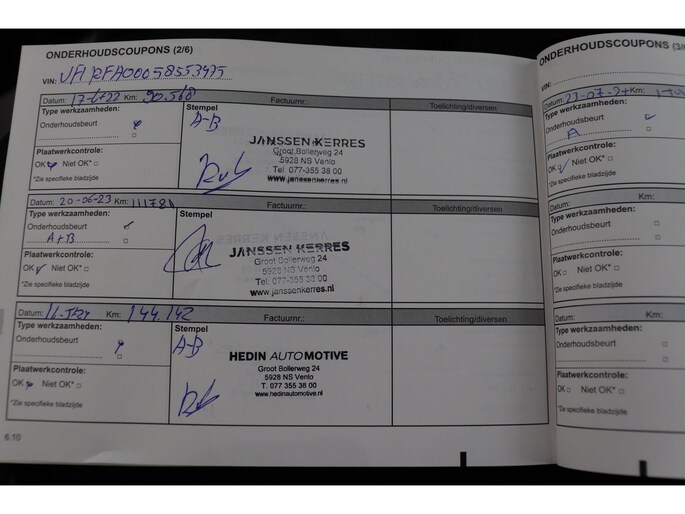 ONDERHOUDSCOUPONS (2/6)
VIN: VF1RFA00058553975
Datum: 17-6-22 Km: 90.568
Factuurnr.:
Toelichting/diversen
Type werkzaamheden:
Stempel
Onderhoudsbeurt
A-B
Plaatwerkcontrole:
OK Niet OK*
*Zie specifieke bladzijde
JANSSEN KERRES
Groot Bollerweg 24
5928 NS Venlo
Tel. 077-355 38 00
www.janssenkerres.nl
Datum: 20-06-23 Km: 111781
Factuurnr.:
Toelichting/diversen
Type werkzaamheden:
Stempel
Onderhoudsbeurt
A+B
Plaatwerkcontrole:
OK Niet OK*
*Zie specifieke bladzijde
JANSSEN KERRES
Groot Bollerweg 24
5928 NS Venlo
Tel. 077-355 38 00
www.janssenkerres.nl
Datum: Km: 144.142
Factuurnr.:
Toelichting/diversen
Type werkzaamheden:
Stempel
Onderhoudsbeurt
A-B
Plaatwerkcontrole:
OK Niet OK*
*Zie specifieke bladzijde
HEDIN AUTOMOTIVE
Groot Bollerweg 24
5928 NS Venlo
T. 077 355 38 00
www.hedinautomotive.nl
6.10
ONDERHOUDSCOUPONS (3/
VIN:
Datum: 23-07-24 Km:
Type werkzaamheden:
Onderhoudsbeurt
A
Plaatwerkcontrole:
OK Niet OK*
*Zie specifieke bladzijde
Datum: Km:
Type werkzaamheden:
Onderhoudsbeurt
Plaatwerkcontrole:
OK Niet OK*
*Zie specifieke bladzijde
Datum: Km:
Type werkzaamheden:
Onderhoudsbeurt
Plaatwerkcontrole:
OK Niet OK*
*Zie specifieke bladzijde